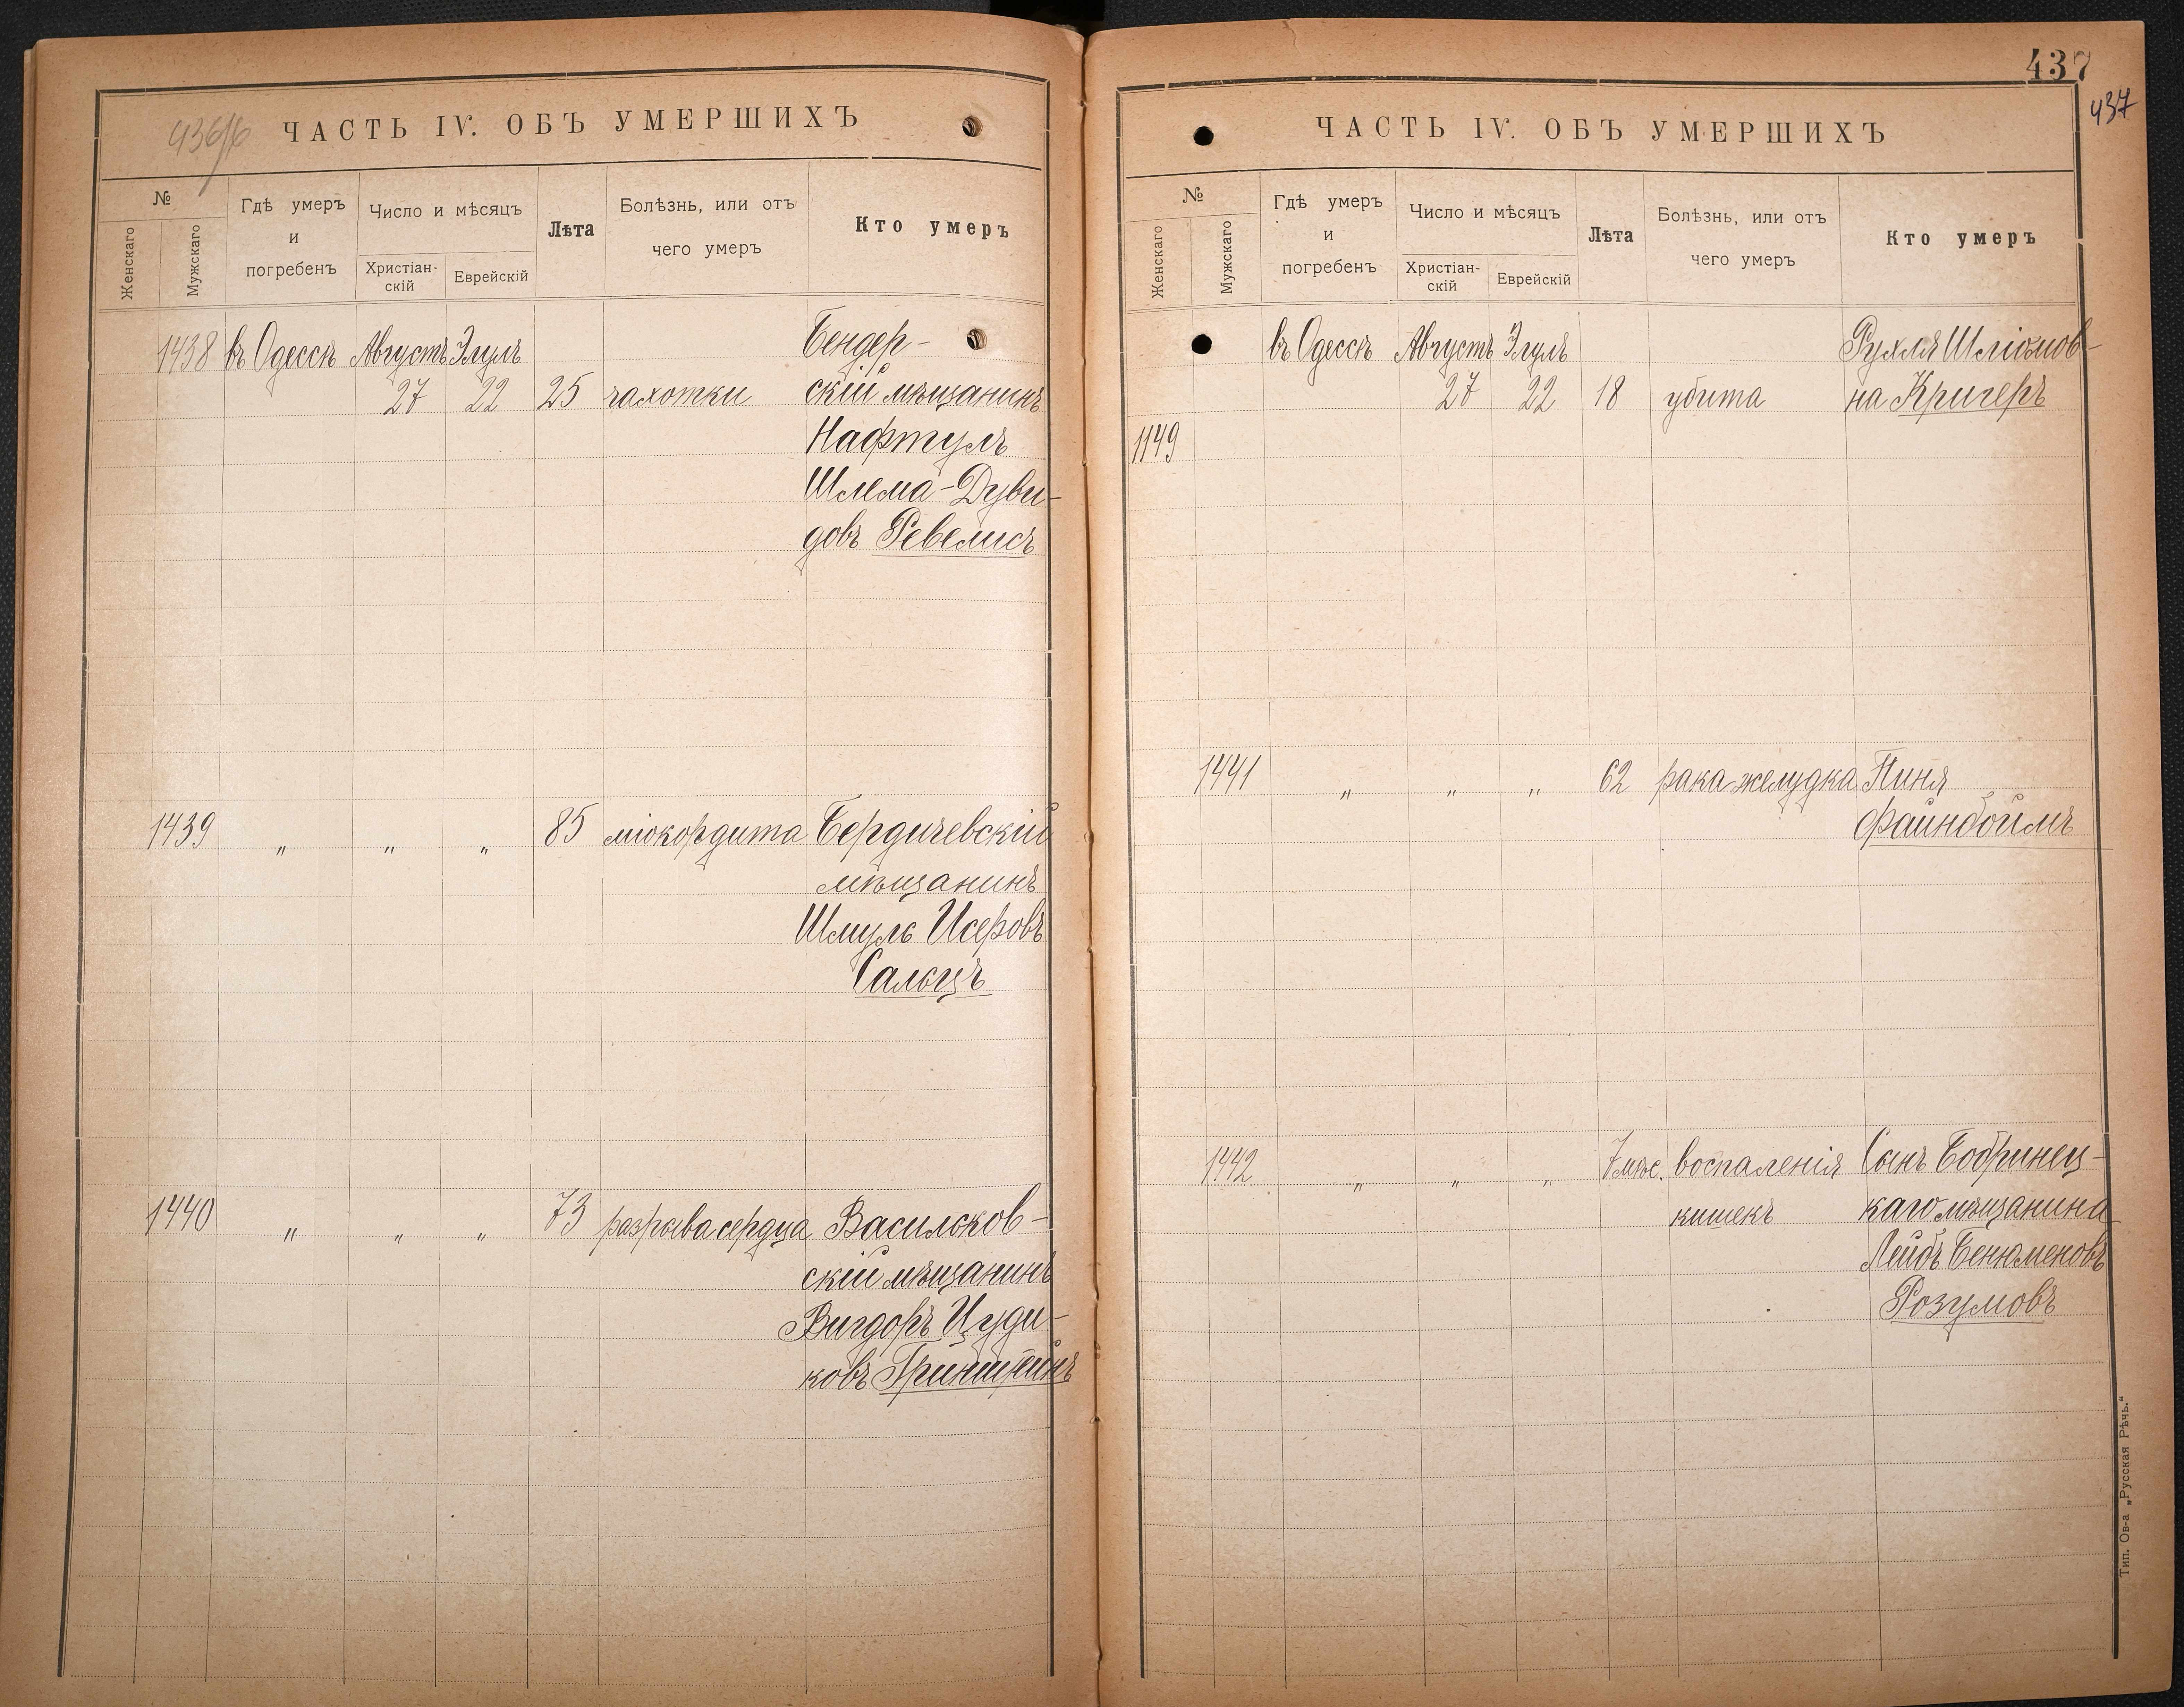 436/б
ЧАСТЬ IV. ОБЪ УМЕРШИХЪ
№
Женскаго
Мужскаго
Гдѣ умеръ
и
погребенъ
Число и мѣсяцъ
Христіан-
скій
Еврейскій
Лѣта
Болѣзнь, или отъ
чего умеръ
Кто умеръ
1438 въ Одессѣ Августъ Элулъ Бендер-
27 22 25 чахотки скій мѣщанинъ
Нафтулъ
Шлема-Дуви-
довъ Ревелисъ
1439 " " " 85 міокордита Бердичевскій
мѣщанинъ
Шмуль Исеровъ
Сальцъ
1440 " " " 73 разрыва сердца Васильков-
скій мѣщанинъ
Вигдоръ Цуди-
ковъ Гринштейнъ
437
437
ЧАСТЬ IV. ОБЪ УМЕРШИХЪ
№
Женскаго
Мужскаго
Гдѣ умеръ
и
погребенъ
Число и мѣсяцъ
Христіан-
скій
Еврейскій
Лѣта
Болѣзнь, или отъ
чего умеръ
Кто умеръ
въ Одессѣ Августъ Элулъ Рухля Шліомов-
27 22 18 убита на Кригеръ
1149
1441 " " " 62 рака желудка Пиня
Файнбоймъ
1442 " " " 7 мѣс. воспаленія Сынъ Бобринец-
кишекъ каго мѣщанина
Лейбъ Бенюменовъ
Розумовъ
Тип. Ов-а „Русская Рѣчь.“